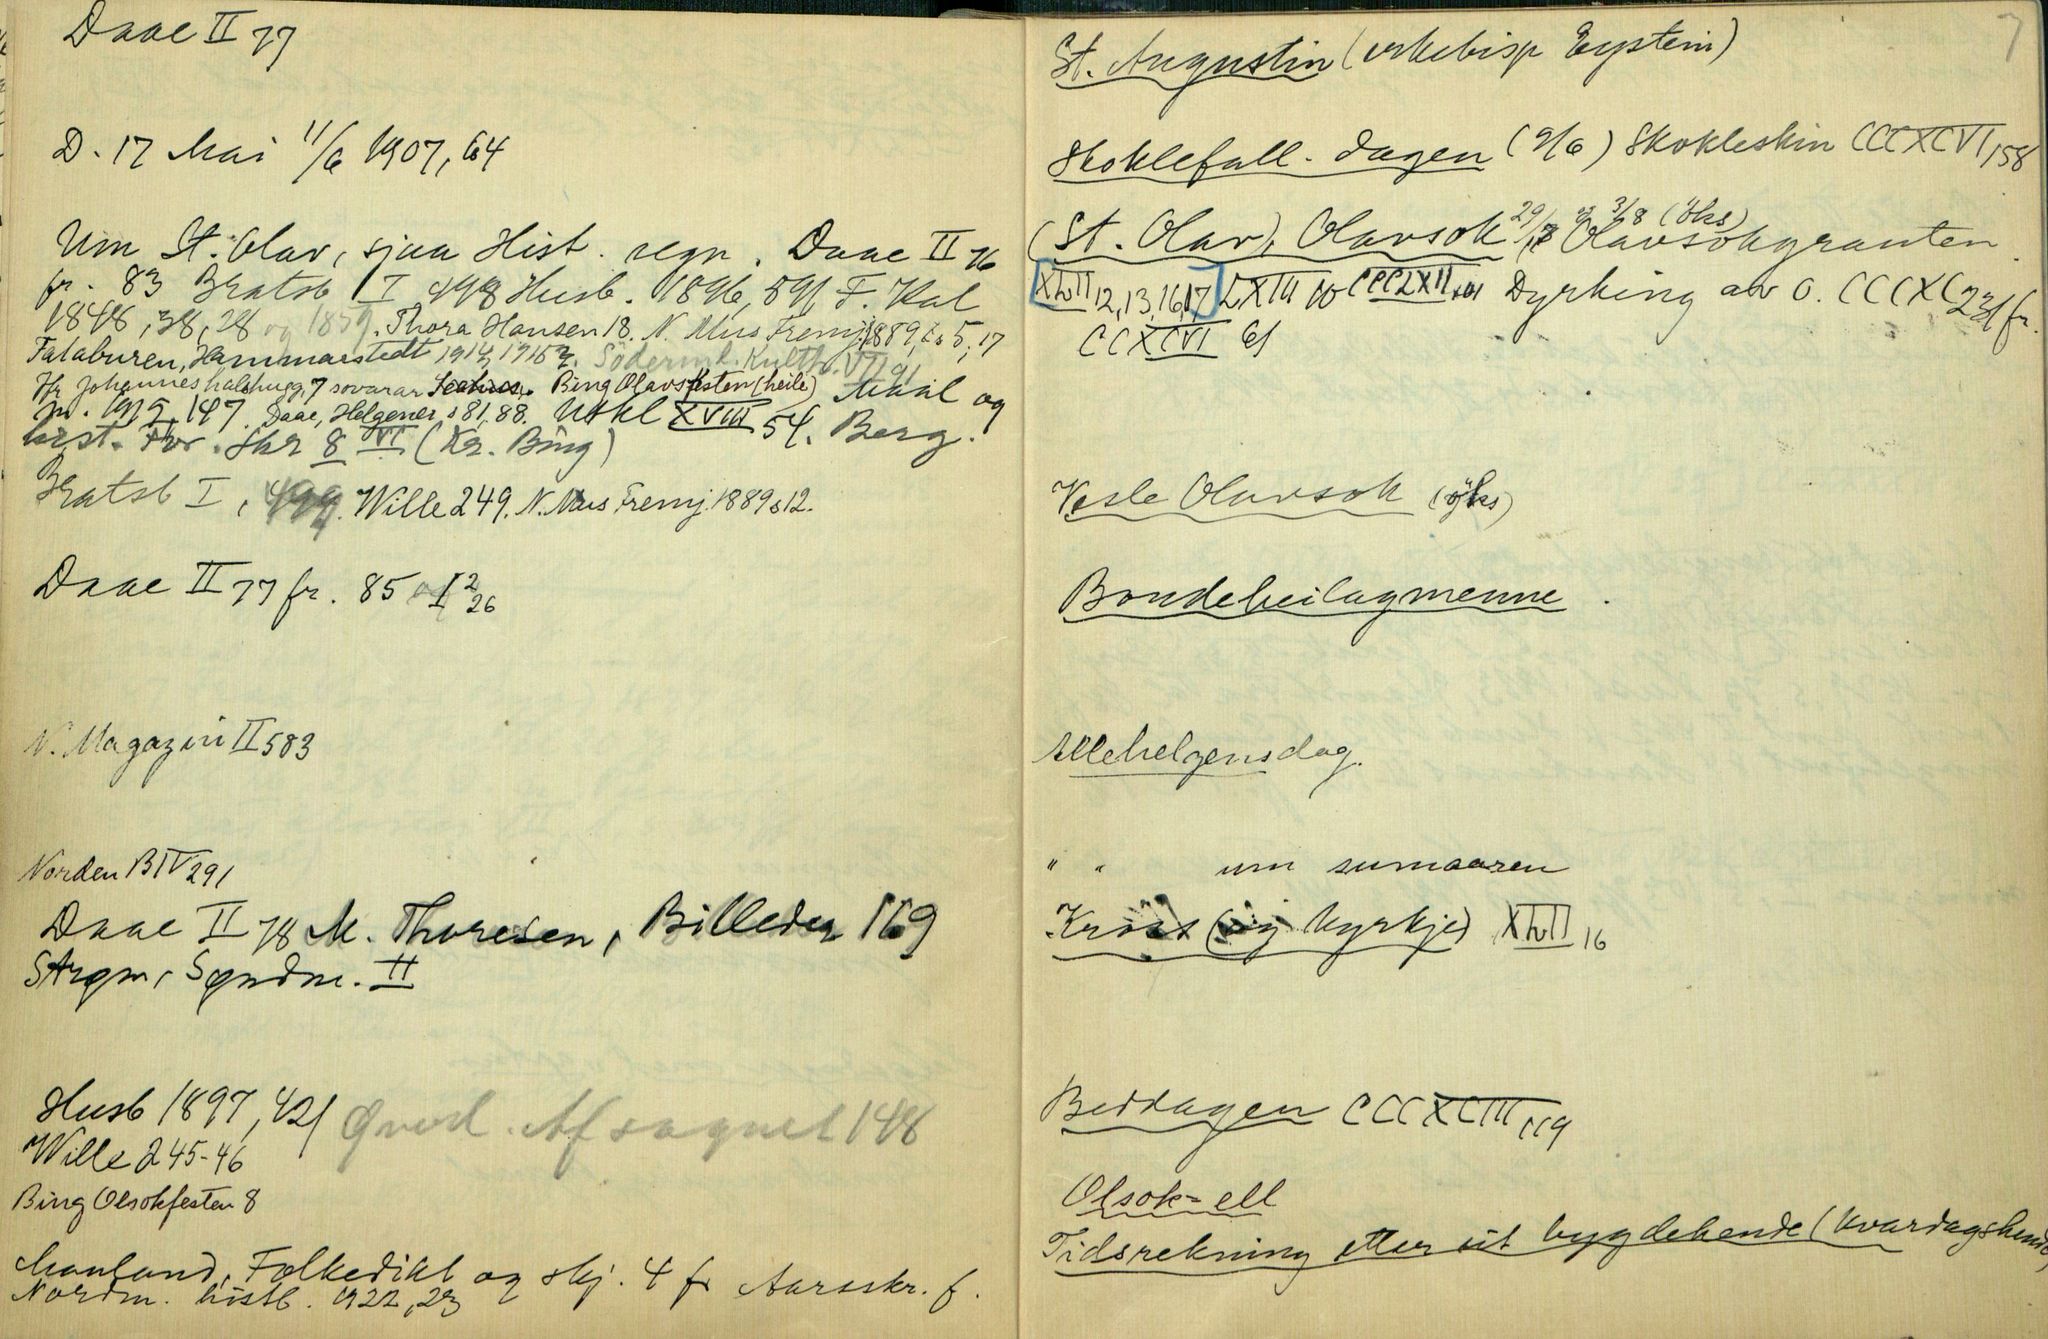 Daae II 77
D. 17 Mai 11/6 1907, 64
Um St. Olav, sjaa Hist. regn. Daae II 76
fr. 83 Bratsb I 498 Husb. 1896, 591 F. Kal
1848, 38, 28 og 1859. Thora Hansen 18. N. Mus Fremj. 1889, s 5, 17
Fataburen, Hammarstedt 1914, 1915 Söderml. Kulth. VII 91
Hr Johannes halshugg, 7 sovarar Bing Olavsfesten (heile) Maal og
m. 1915, 147. Daae, Helgener s 81, 88. XVIII 54. Berg.
hist. For. Skr 8 VI (Kr. Bing)
Bratsb I, 499. Wille 249. N. Mus Fremj. 1889 s 12.
Daae II 77 fr. 85 og I 2 26
N. Magazin II 583
Norden B IV 291
Daae II 78 M. Thoresen, Billeder 169
Strøm, Søndm. II
Husb 1897, 421 Qvisl. Afsagnet 148
Wille 245-46
Bing Olsokfesten 8
Mauland, Folkedikt og skj. 4 fr Aarsskr. f.
Nordm. histl. 1922, 23
7
St. Augustin (erkebisp Eystein)
Skoklefall-dagen (9/6) Skokleskin CCCXCVI, 158
(St. Olav), Olavsok 29/7 og 3/8 (øks) Olavsokgrauten
XLII 12, 13, 16, 17 LXIII 10 CCCLXII Dyrking av O. CCCXC 231 fr.
CCXCVI 61
Vesle Olavsok (øks)
Bondeheilagmenne.
Allehelgensdag.
" " um sumaaren
Kross (og kyrkje) XLII 16
Beddagen CCCXCIII 119
Olsok-ell
Tidsrekning etter eit bygdehende (kvardagshende)